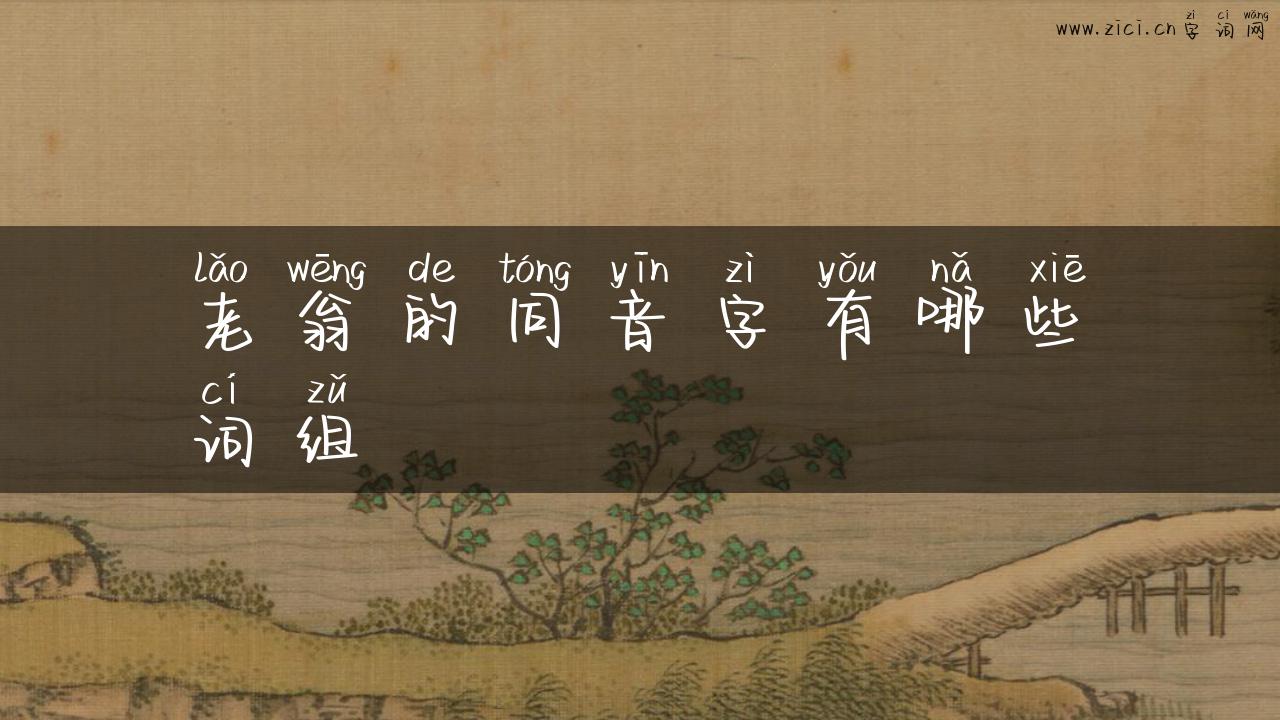 zì cí wǎng
www.zici.cn 字词网
lǎo wēng de tóng yīn zì yǒu nǎ xiē
老翁的同音字有哪些
cí zǔ
词组